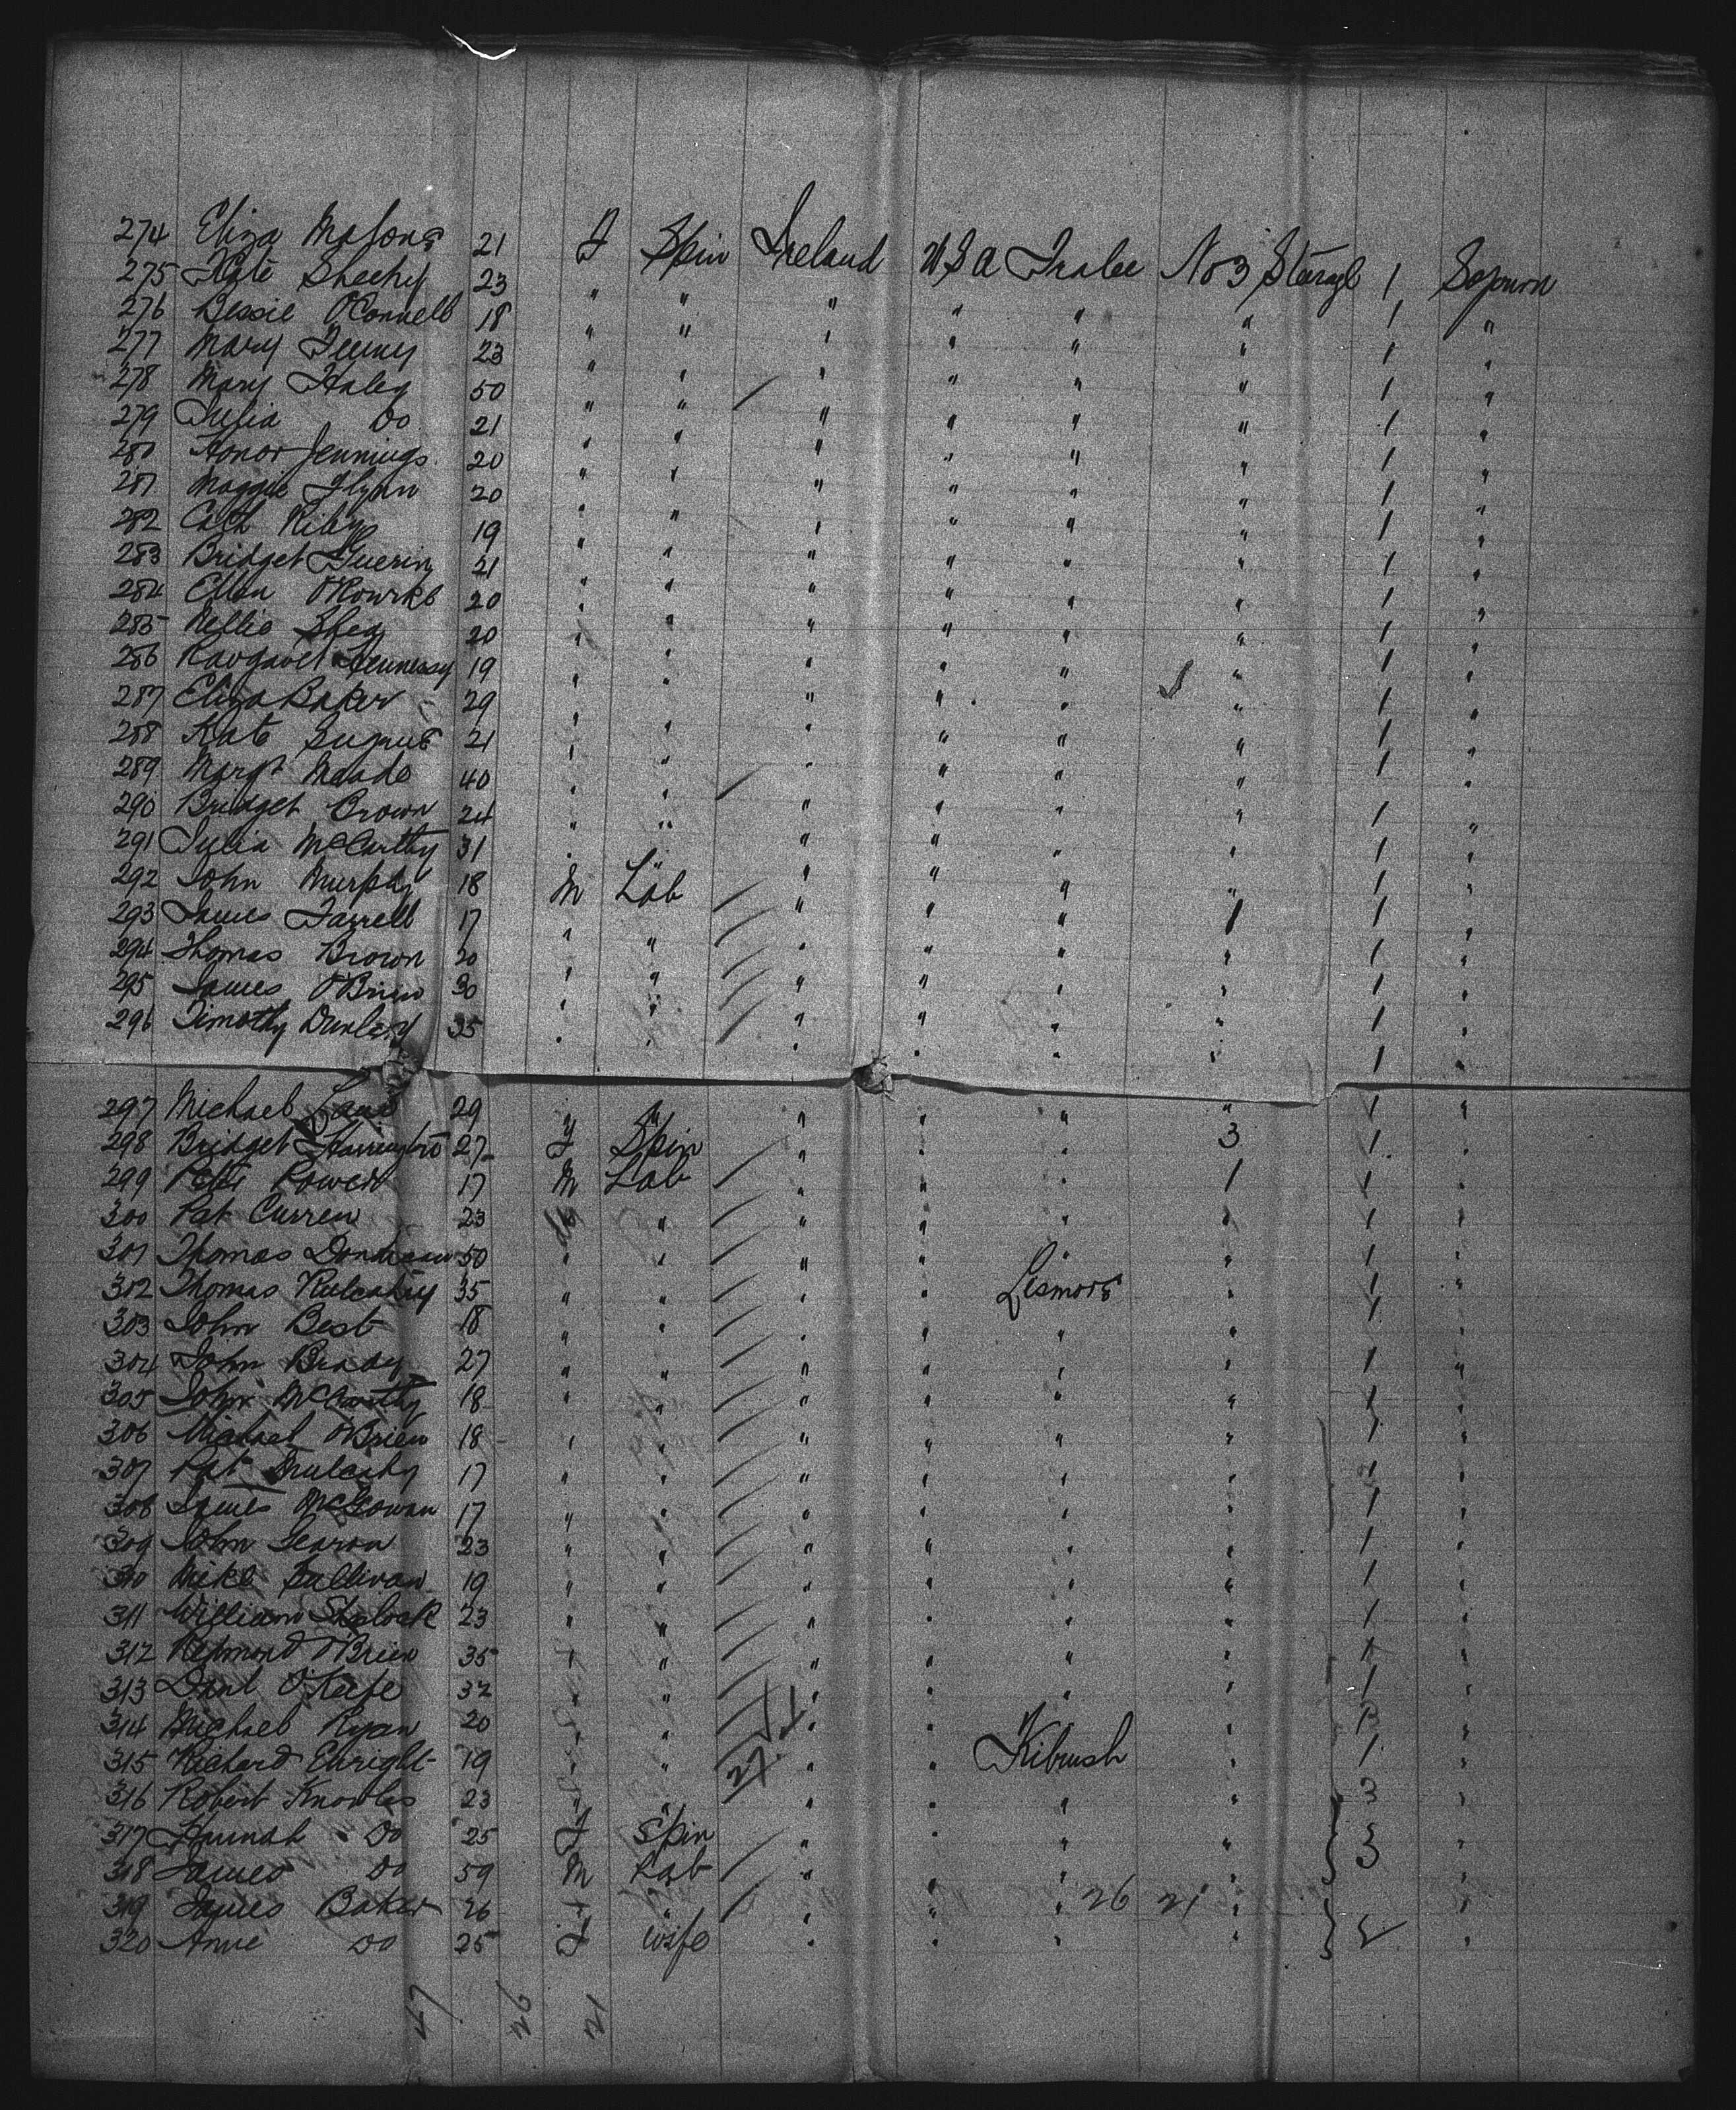 274 Eliza 21 F Spin Ireland USA Tralee No 3 Sterage 1 Sojourn
275 Kate Sheehy 23 " " " " " " 1 "
276 Bessie O'Connell 18 " " " " " " 1 "
277 Mary Feeny 23 " " " " " " 1 "
278 Mary Haley 50 " " " " " " 1 "
279 Julia Do 21 " " " " " " 1 "
280 Honor Jennings 20 " " " " " " 1 "
281 Maggie Flynn 20 " " " " " " 1 "
282 Cath 19 " " " " " " 1 "
283 Bridget Guerin 21 " " " " " " 1 "
284 Ellen O'Rourke 20 " " " " " " 1 "
285 Nellie Shea 20 " " " " " " 1 "
286 Hennessy 19 " " " " " " 1 "
287 Eliza Baker 29 " " " " " " 1 "
288 Kate Sugrue 21 " " " " " " 1 "
289 Margt Meade 40 " " " " " "
290 Bridget Brown 24 " " " " " " 1 "
291 Julia McCarthy 31 " " " " " " 1 "
292 John Murphy 18 M Lab " " " " 1 "
293 James Farrell 17 " " " " " 1 1 "
294 Thomas Brown 20 " " " " " " 1 "
295 James O'Brien 30 " " " " " " 1 "
296 Timothy 35 " " " " " " 1 "
297 Michael Lane 29 " " " " " 1 "
298 Bridget Harrington 27 F Spin " " " 3 1 "
299 Power 17 M Lab " " " 1 1 "
300 Pat Curren 23 " " " " " 1 "
301 Thomas 50 " " " " " " 1 "
302 Thomas 35 " " " " Lismore " 1 "
303 John Best 18 " " " " " " 1 "
304 John Brady 27 " " " " " " 1 "
305 John McCarthy 18 " " " " " " 1 "
306 Michael O'Brien 18 " " " " " " 1 "
307 Pat Mulcahy 17 " " " " " " "
308 James McGowan 17 " " " " " " 1 "
309 John 23 " " " " " " 1 "
310 Mike Sullivan 19 " " " " " " 1 "
311 William 23 " " " " " " 1 "
312 Redmond O'Brien 35 " " " " " " 1 "
313 Danl O'Keefe 32 " " " " " " 1 "
314 Michael Ryan 20 " " " " " " "
315 Richard Enright 19 " " " " Kilrush " 1 "
316 Robert Knowles 23 " " " " " " 3 "
317 Hannah Do 25 F Spin " " " " 3 "
318 James Do 59 M Lab " " " " "
319 James Baker 26 " " " " " 26 21 " "
320 Anne Do 25 F Wife " " " " 2 "